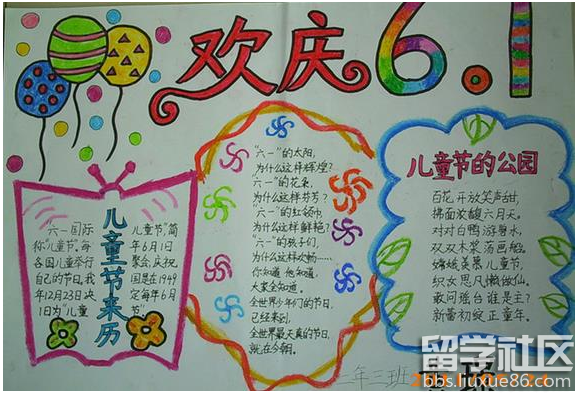 欢庆6.1
儿童节来历
"六一国际
你儿童节,每
各国儿童举行
自己的节日,我
年12月23日决
1日为"儿童
儿童节"简
年6月1
聚会,庆祝
国是在1949
定每年6月
节"
"六一"的太阳,
为什么这样辉煌?
"六一"的花朵,
为什么这样芬芳?
"六一"的红领巾
为什么这样鲜艳?
"六一"的孩子们,
为什么这样欢畅……
你知道 他知道,
大家全知道。
全世界少年们的节日,
已经来到,
全世界最天真的节日,
就在今朝。
儿童节的公园
百花开放笑声甜,
拂面浓馥六月天。
对对白鸭游碧水,
双双木桨荡画船。
嫦娥羡慕儿童节,
织女思凡懒做仙。
敢问瑶台谁是主?
新蕾初绽正童年。
二年三班
留学社区
bbs.liuxue86.com